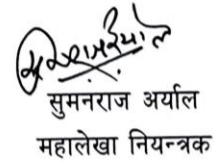 सुमनराज अर्याल
महालेखा नियन्त्रक